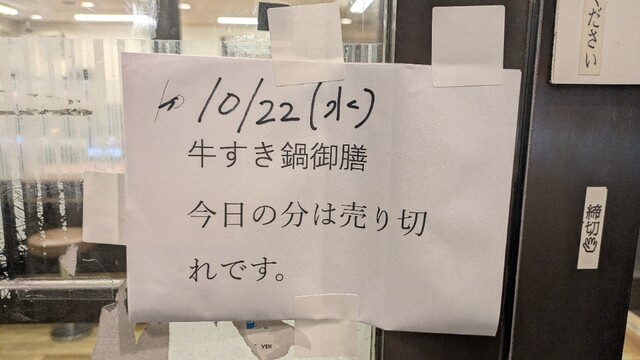 10/22(水)
牛すき鍋御膳
今日の分は売り切
れです。
ください
締切
VER